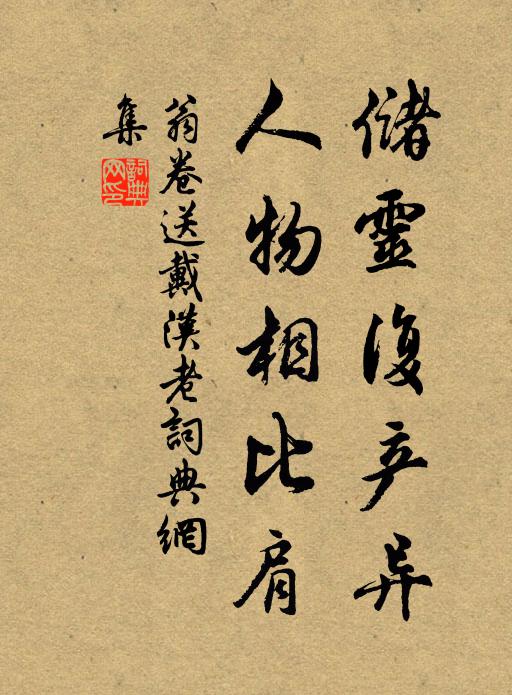 儲靈復产异
人物相比肩
翁卷送戴漢老詞典網
集
詞典
网印